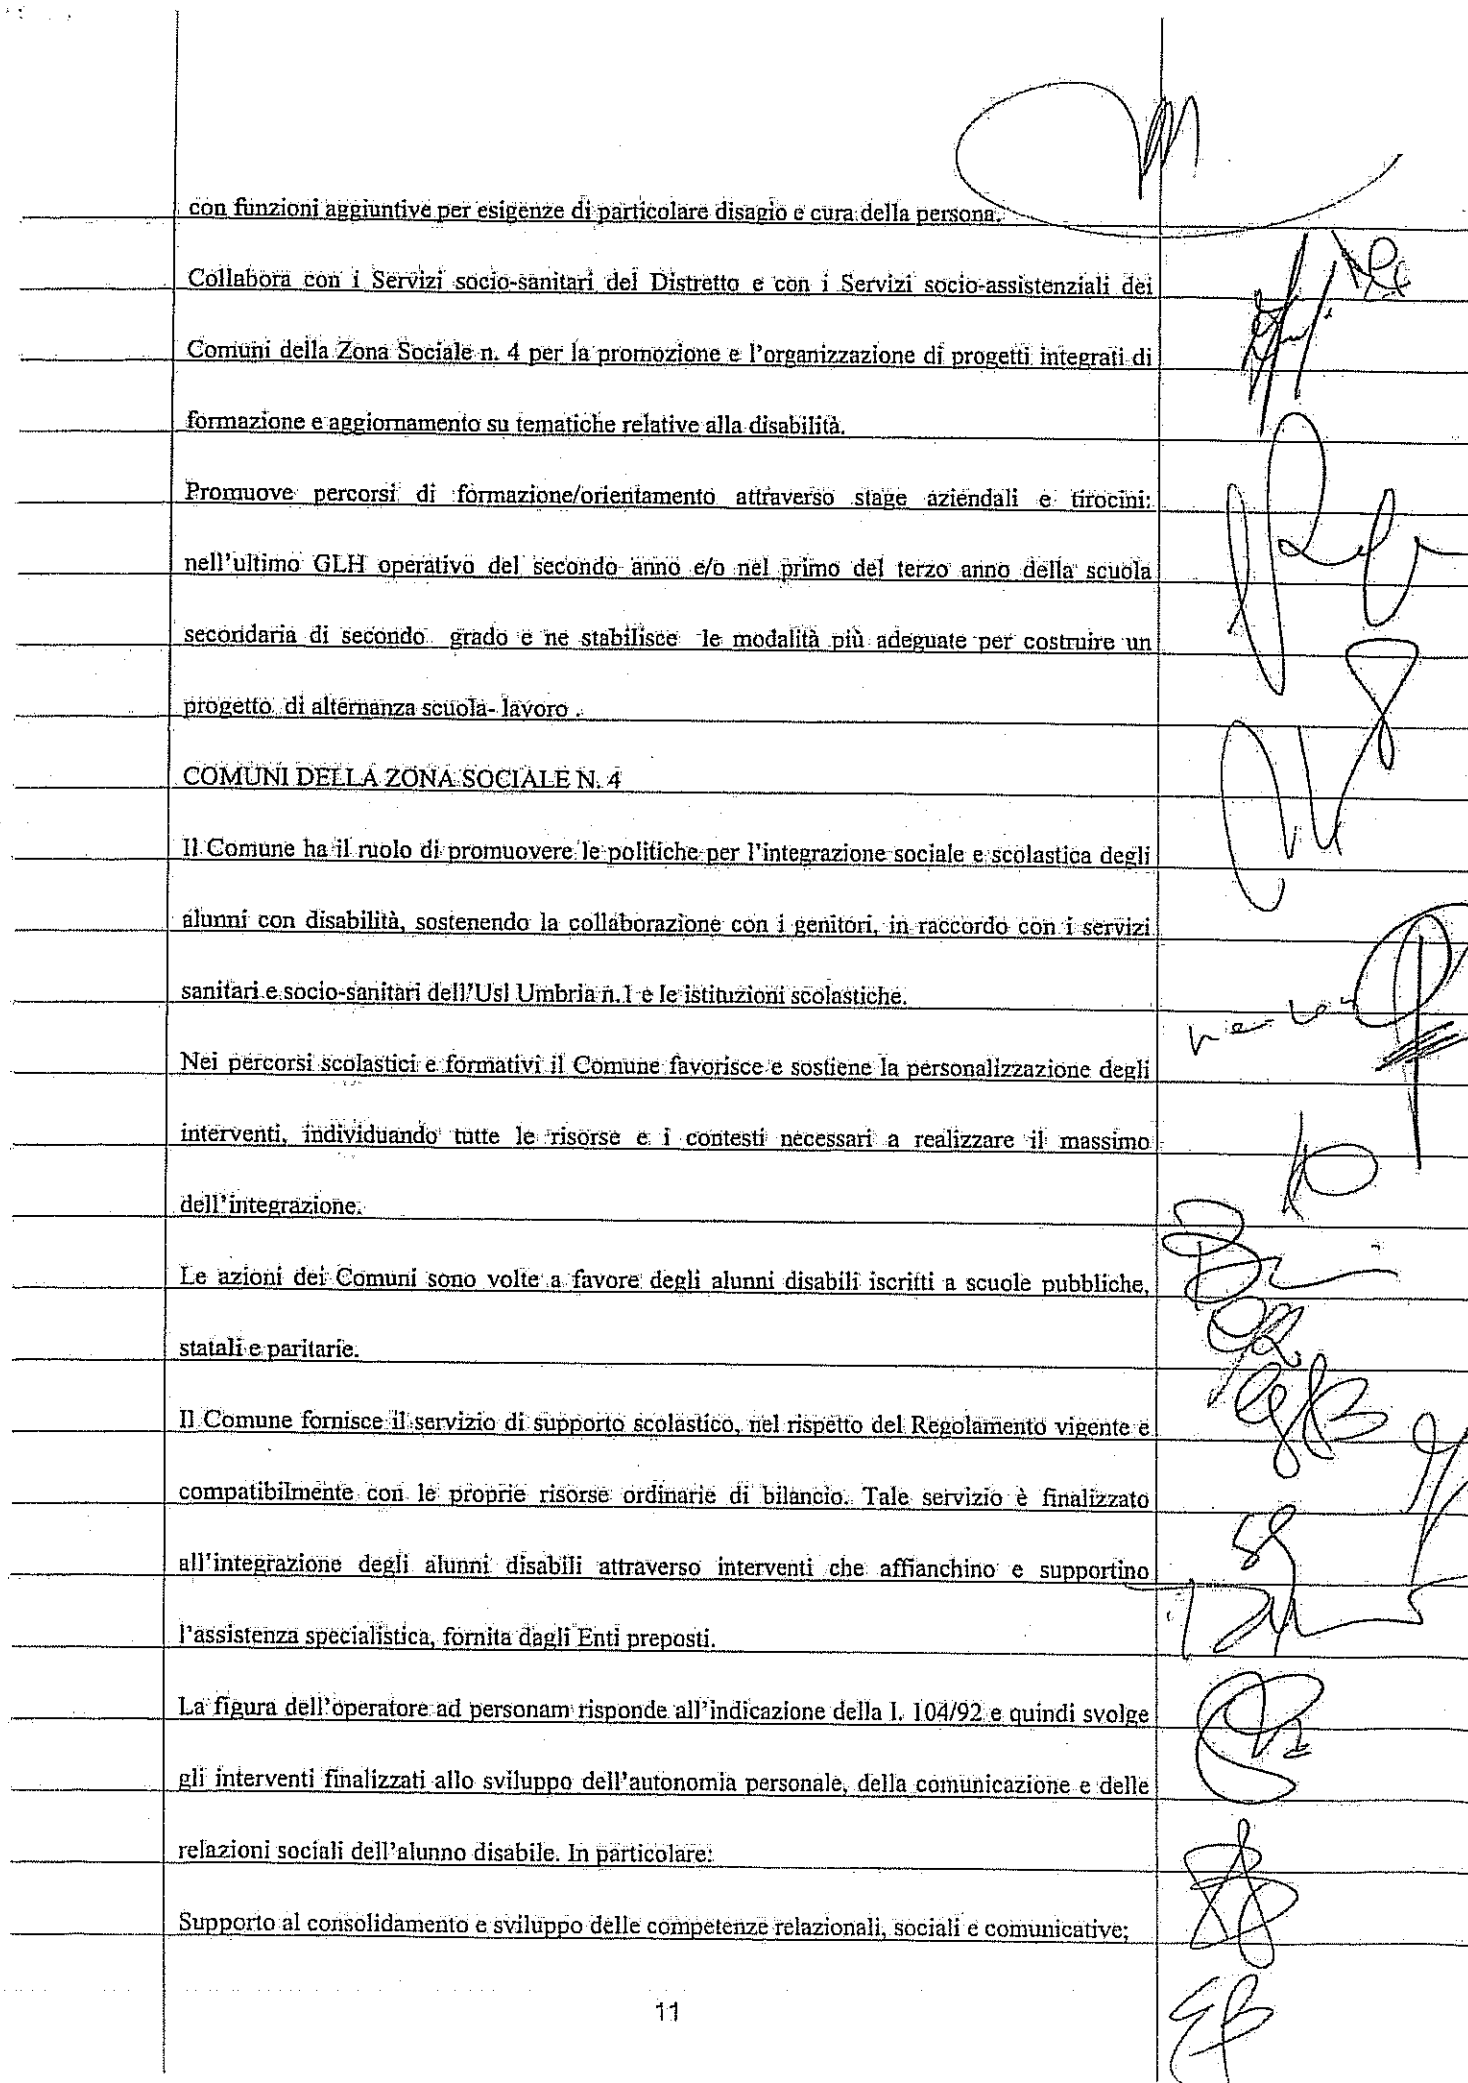 con funzioni aggiuntive per esigenze di particolare disagio e cura della persona.
Collabora con i Servizi socio-sanitari del Distretto e con i Servizi socio-assistenziali dei
Comuni della Zona Sociale n. 4 per la promozione e l'organizzazione di progetti integrati di
formazione e aggiornamento su tematiche relative alla disabilità.
Promuove percorsi di formazione/orientamento attraverso stage aziendali e tirocini:
nell'ultimo GLH operativo del secondo anno e/o nel primo del terzo anno della scuola
secondaria di secondo grado e ne stabilisce le modalità più adeguate per costruire un
progetto di alternanza scuola- lavoro .
COMUNI DELLA ZONA SOCIALE N. 4
Il Comune ha il ruolo di promuovere le politiche per l'integrazione sociale e scolastica degli
alunni con disabilità, sostenendo la collaborazione con i genitori, in raccordo con i servizi
sanitari e socio-sanitari dell'Usl Umbria n.1 e le istituzioni scolastiche.
Nei percorsi scolastici e formativi il Comune favorisce e sostiene la personalizzazione degli
interventi, individuando tutte le risorse e i contesti necessari a realizzare il massimo
dell'integrazione.
Le azioni dei Comuni sono volte a favore degli alunni disabili iscritti a scuole pubbliche,
statali e paritarie.
Il Comune fornisce il servizio di supporto scolastico, nel rispetto del Regolamento vigente e
compatibilmente con le proprie risorse ordinarie di bilancio. Tale servizio è finalizzato
all'integrazione degli alunni disabili attraverso interventi che affianchino e supportino
l'assistenza specialistica, fornita dagli Enti preposti.
La figura dell'operatore ad personam risponde all'indicazione della l. 104/92 e quindi svolge
gli interventi finalizzati allo sviluppo dell'autonomia personale, della comunicazione e delle
relazioni sociali dell'alunno disabile. In particolare:
Supporto al consolidamento e sviluppo delle competenze relazionali, sociali e comunicative;
11